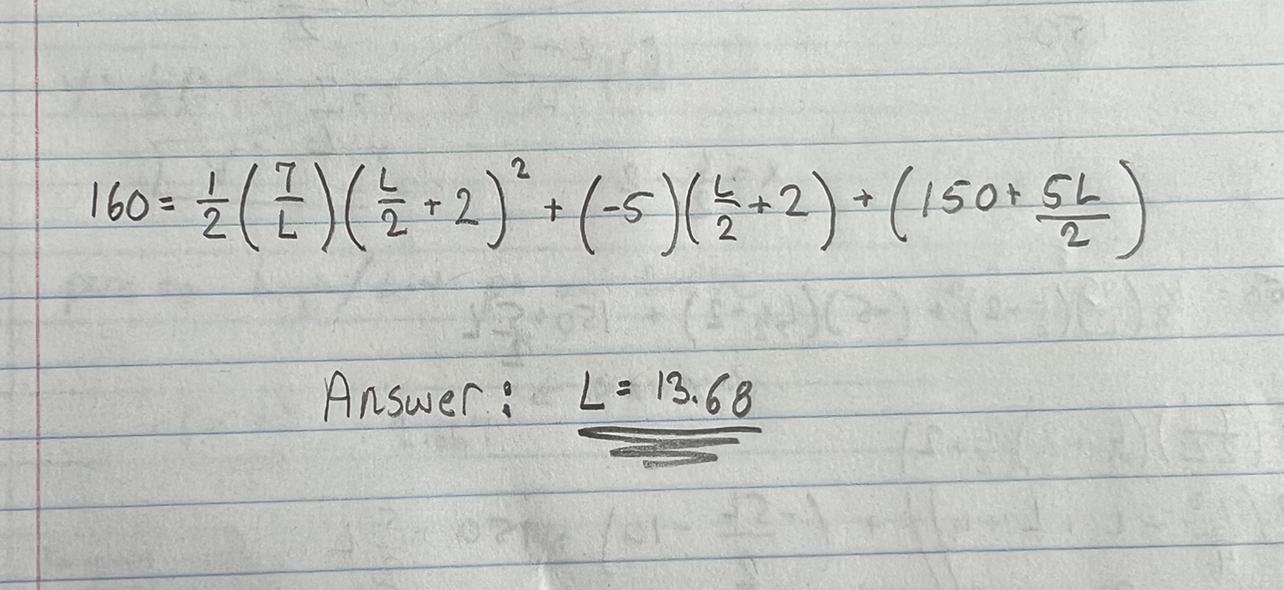 160 = 1/2 (7/L)(L/2 + 2)² + (-5)(L/2 + 2) + (150 + 5L/2)
Answer: L = 13.68